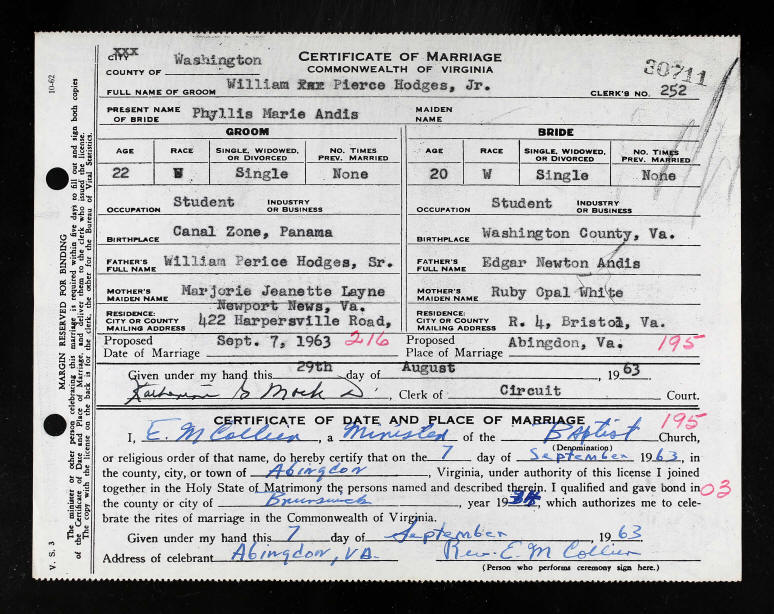 XXX
CITY
COUNTY OF Washington
CERTIFICATE OF MARRIAGE
COMMONWEALTH OF VIRGINIA
30711
FULL NAME OF GROOM William xxx Pierce Hodges, Jr.
CLERK'S NO. 252
PRESENT NAME OF BRIDE Phyllis Marie Andis
MAIDEN NAME
GROOM BRIDE
AGE RACE SINGLE, WIDOWED, OR DIVORCED NO. TIMES PREV. MARRIED AGE RACE SINGLE, WIDOWED, OR DIVORCED NO. TIMES PREV. MARRIED
22 W Single None 20 W Single None
OCCUPATION Student INDUSTRY OR BUSINESS OCCUPATION Student INDUSTRY OR BUSINESS
BIRTHPLACE Canal Zone, Panama BIRTHPLACE Washington County, Va.
FATHER'S FULL NAME William Perice Hodges, Sr. FATHER'S FULL NAME Edgar Newton Andis
MOTHER'S MAIDEN NAME Marjorie Jeanette Layne MOTHER'S MAIDEN NAME Ruby Opal White
Newport News, Va.
RESIDENCE: CITY OR COUNTY MAILING ADDRESS 422 Harpersville Road, RESIDENCE: CITY OR COUNTY MAILING ADDRESS R. 4, Bristol, Va.
Proposed Date of Marriage Sept. 7, 1963 216 Proposed Place of Marriage Abingdon, Va. 195
Given under my hand this 29th day of August, 1963.
Mock, Clerk of Circuit Court.
CERTIFICATE OF DATE AND PLACE OF MARRIAGE 195
I, E. M Collier, a Minister of the Baptist Church,
(Denomination)
or religious order of that name, do hereby certify that on the 7 day of September 1963, in
the county, city, or town of Abingdon, Virginia, under authority of this license I joined
together in the Holy State of Matrimony the persons named and described therein. I qualified and gave bond in 03
the county or city of Brunswick, year 19, which authorizes me to cele-
brate the rites of marriage in the Commonwealth of Virginia.
Given under my hand this 7 day of September, 1963
Address of celebrant Abingdon, VA. Rev. E. M Collier
(Person who performs ceremony sign here.)
10-62
MARGIN RESERVED FOR BINDING
The minister or other person celebrating this marriage is required within five days to fill out and sign both copies
of the Certificate of Date and Place of Marriage, and deliver them to the clerk who issued the license.
The copy with the license on the back is for the clerk, the other for the Bureau of Vital Statistics.
V. S. 3